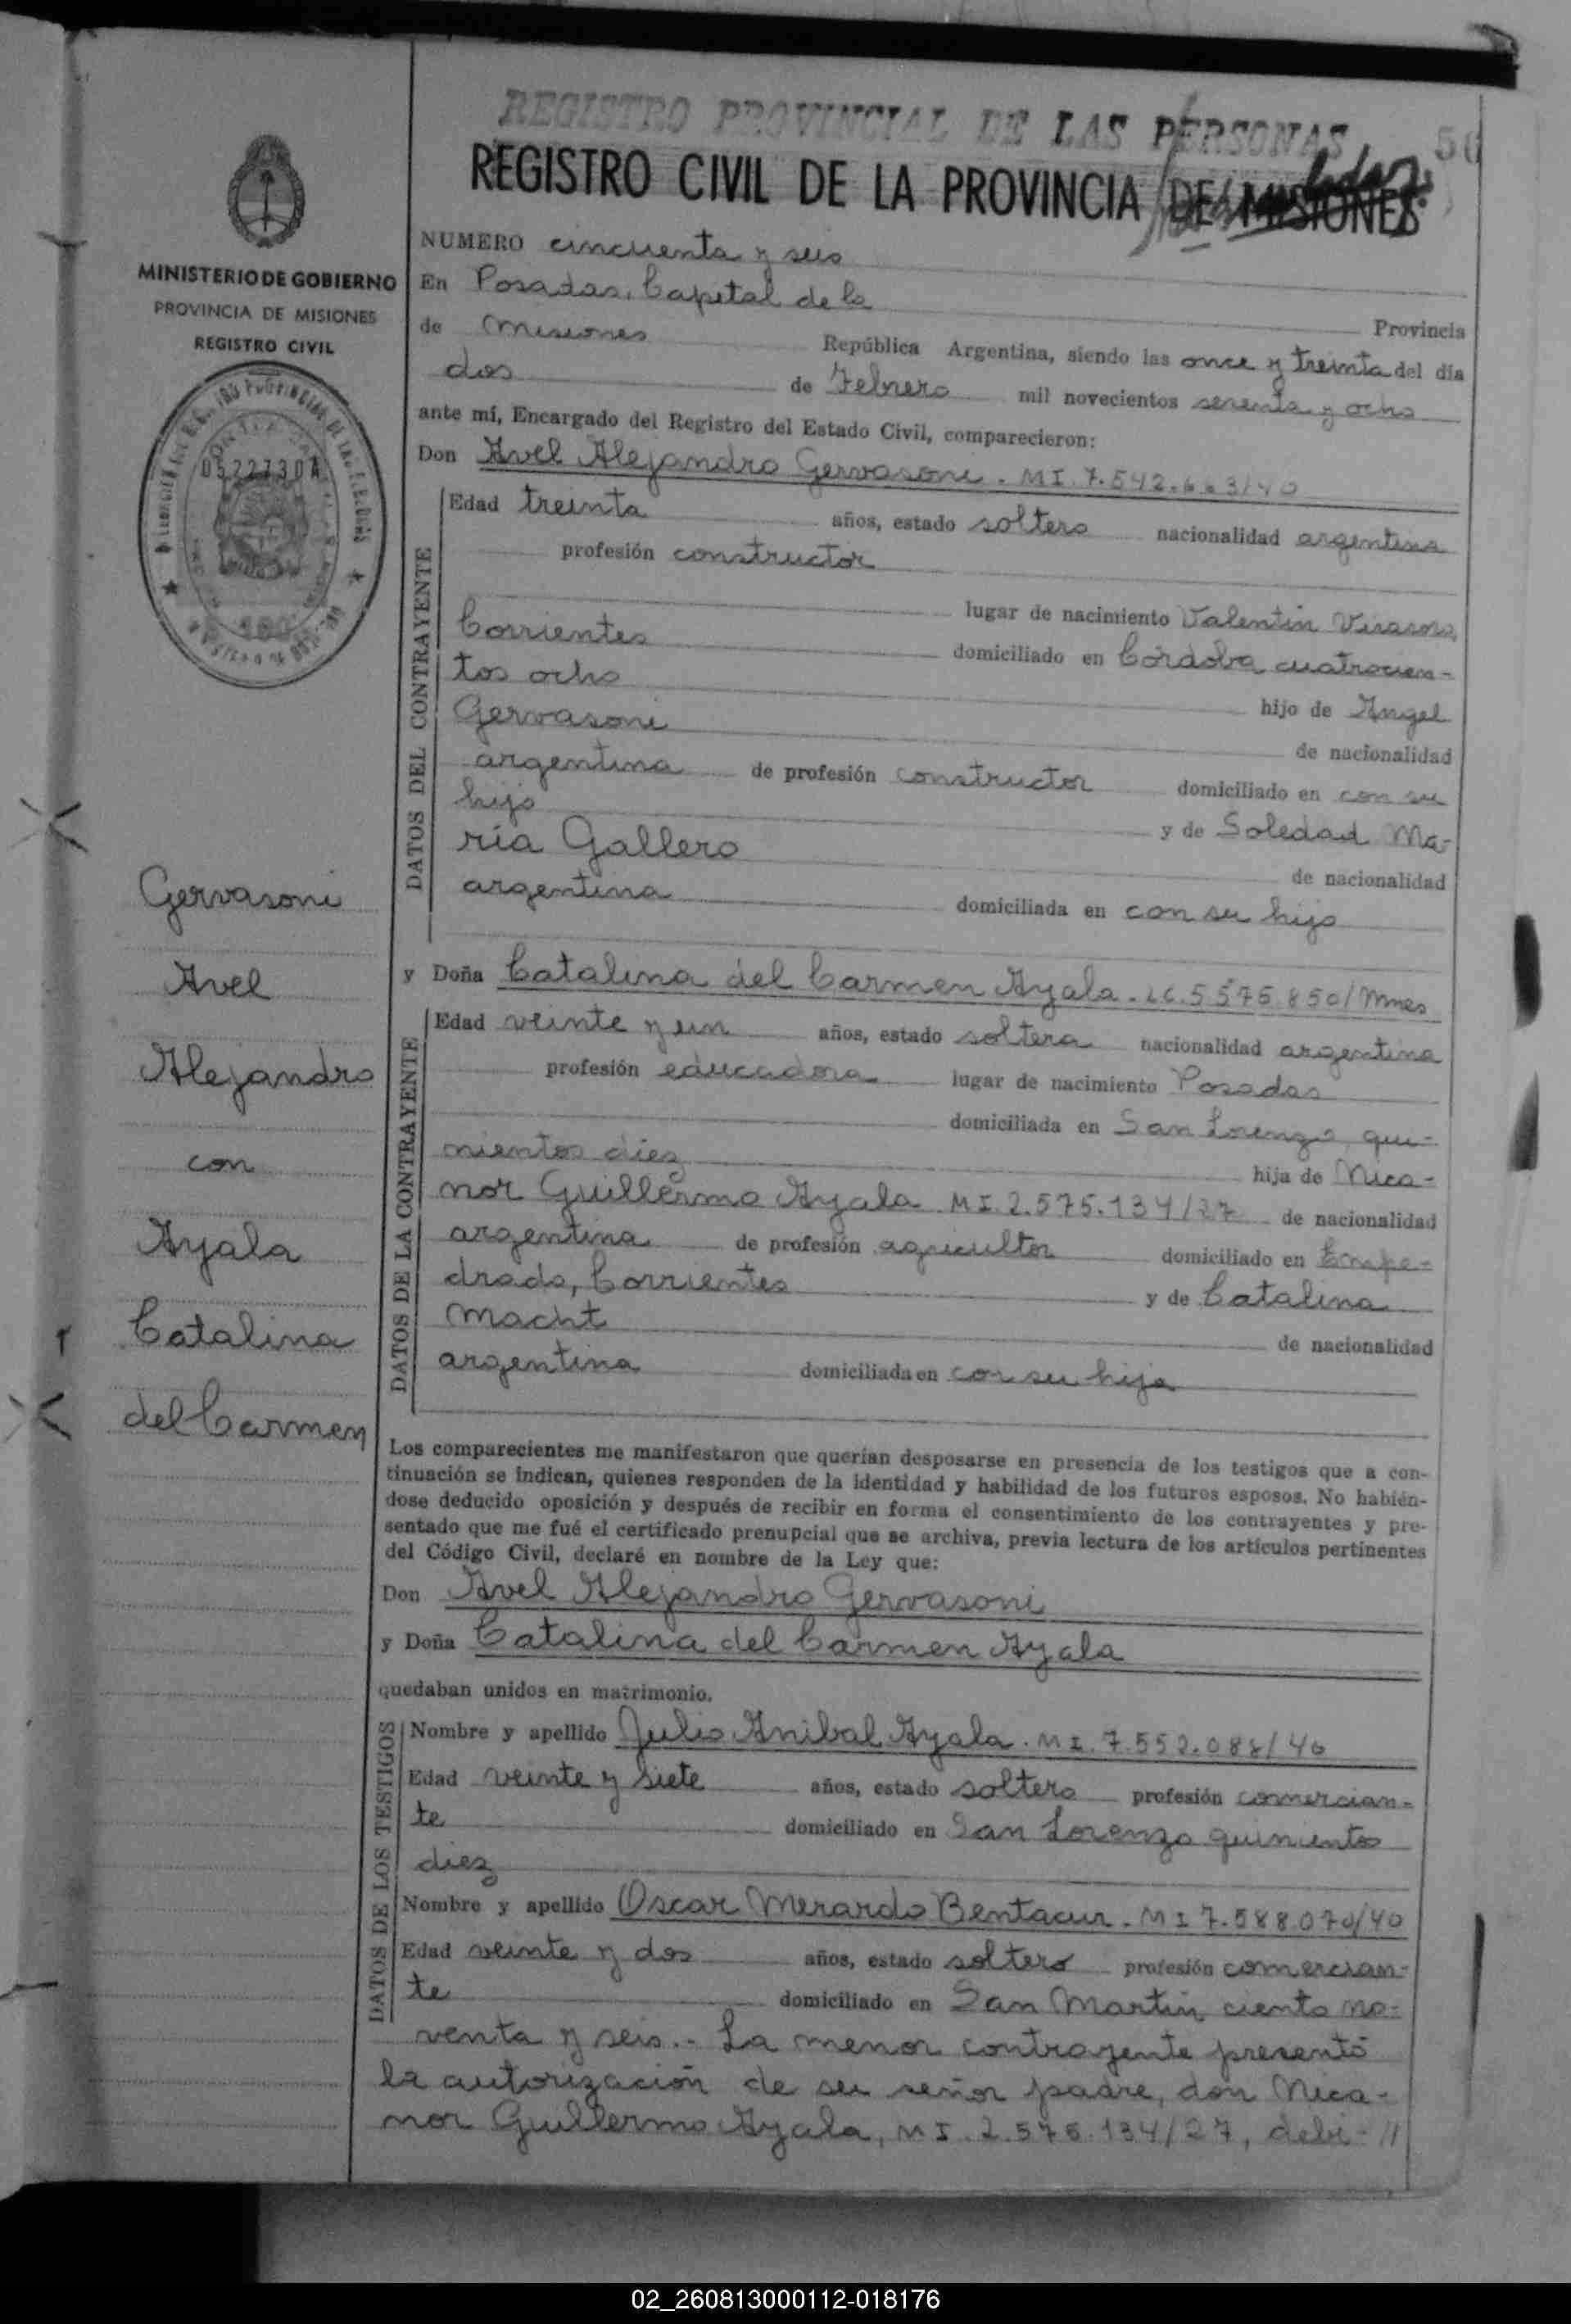 REGISTRO PROVINCIAL DE LAS PERSONAS
REGISTRO CIVIL DE LA PROVINCIA DE MISIONES
MINISTERIO DE GOBIERNO
PROVINCIA DE MISIONES
REGISTRO CIVIL
0522730A
Gervasoni
Avel
Alejandro
con
Ayala
Catalina
del Carmen
NUMERO cincuenta y seis
En Posadas, Capital de la Provincia
de Misiones República Argentina, siendo las once y treinta del día
dos de Febrero mil novecientos sesenta y ocho
ante mí, Encargado del Registro del Estado Civil, comparecieron:
Don Avel Alejandro Gervasoni. MI. 7.542.663/40
DATOS DEL CONTRAYENTE
Edad treinta años, estado soltero nacionalidad argentina
profesión constructor
lugar de nacimiento Valentín Virasoro,
Corrientes domiciliado en Córdoba cuatrocien-
tos ocho hijo de Angel
Gervasoni de nacionalidad
argentina de profesión constructor domiciliado en con su
hijo y de Soledad Ma-
ría Gallero de nacionalidad
argentina domiciliada en con su hijo
y Doña Catalina del Carmen Ayala. LC. 5575.850/Mnes
DATOS DE LA CONTRAYENTE
Edad veinte y un años, estado soltera nacionalidad argentina
profesión educadora lugar de nacimiento Posadas
domiciliada en San Lorenzo qui-
nientos diez hija de Nica-
nor Guillermo Ayala MI. 2.575.134/27 de nacionalidad
argentina de profesión agricultor domiciliado en Empe-
drado, Corrientes y de Catalina
Macht de nacionalidad
argentina domiciliada en con su hija
Los comparecientes me manifestaron que querían desposarse en presencia de los testigos que a con-
tinuación se indican, quienes responden de la identidad y habilidad de los futuros esposos. No habién-
dose deducido oposición y después de recibir en forma el consentimiento de los contrayentes y pre-
sentado que me fué el certificado prenupcial que se archiva, previa lectura de los artículos pertinentes
del Código Civil, declaré en nombre de la Ley que:
Don Avel Alejandro Gervasoni
y Doña Catalina del Carmen Ayala
quedaban unidos en matrimonio.
DATOS DE LOS TESTIGOS
Nombre y apellido Julio Anibal Ayala. MI. 7.552.088/40
Edad veinte y siete años, estado soltero profesión comercian-
te domiciliado en San Lorenzo quinientos
diez
Nombre y apellido Oscar Merardo Bentacur. MI 7.588.070/40
Edad veinte y dos años, estado soltero profesión comercian-
te domiciliado en San Martín, ciento no-
venta y seis.- La menor contrayente presentó
la autorización de su señor padre, don Nica-
nor Guillermo Ayala, MI. 2.575.134/27, debi- //
02_260813000112-018176